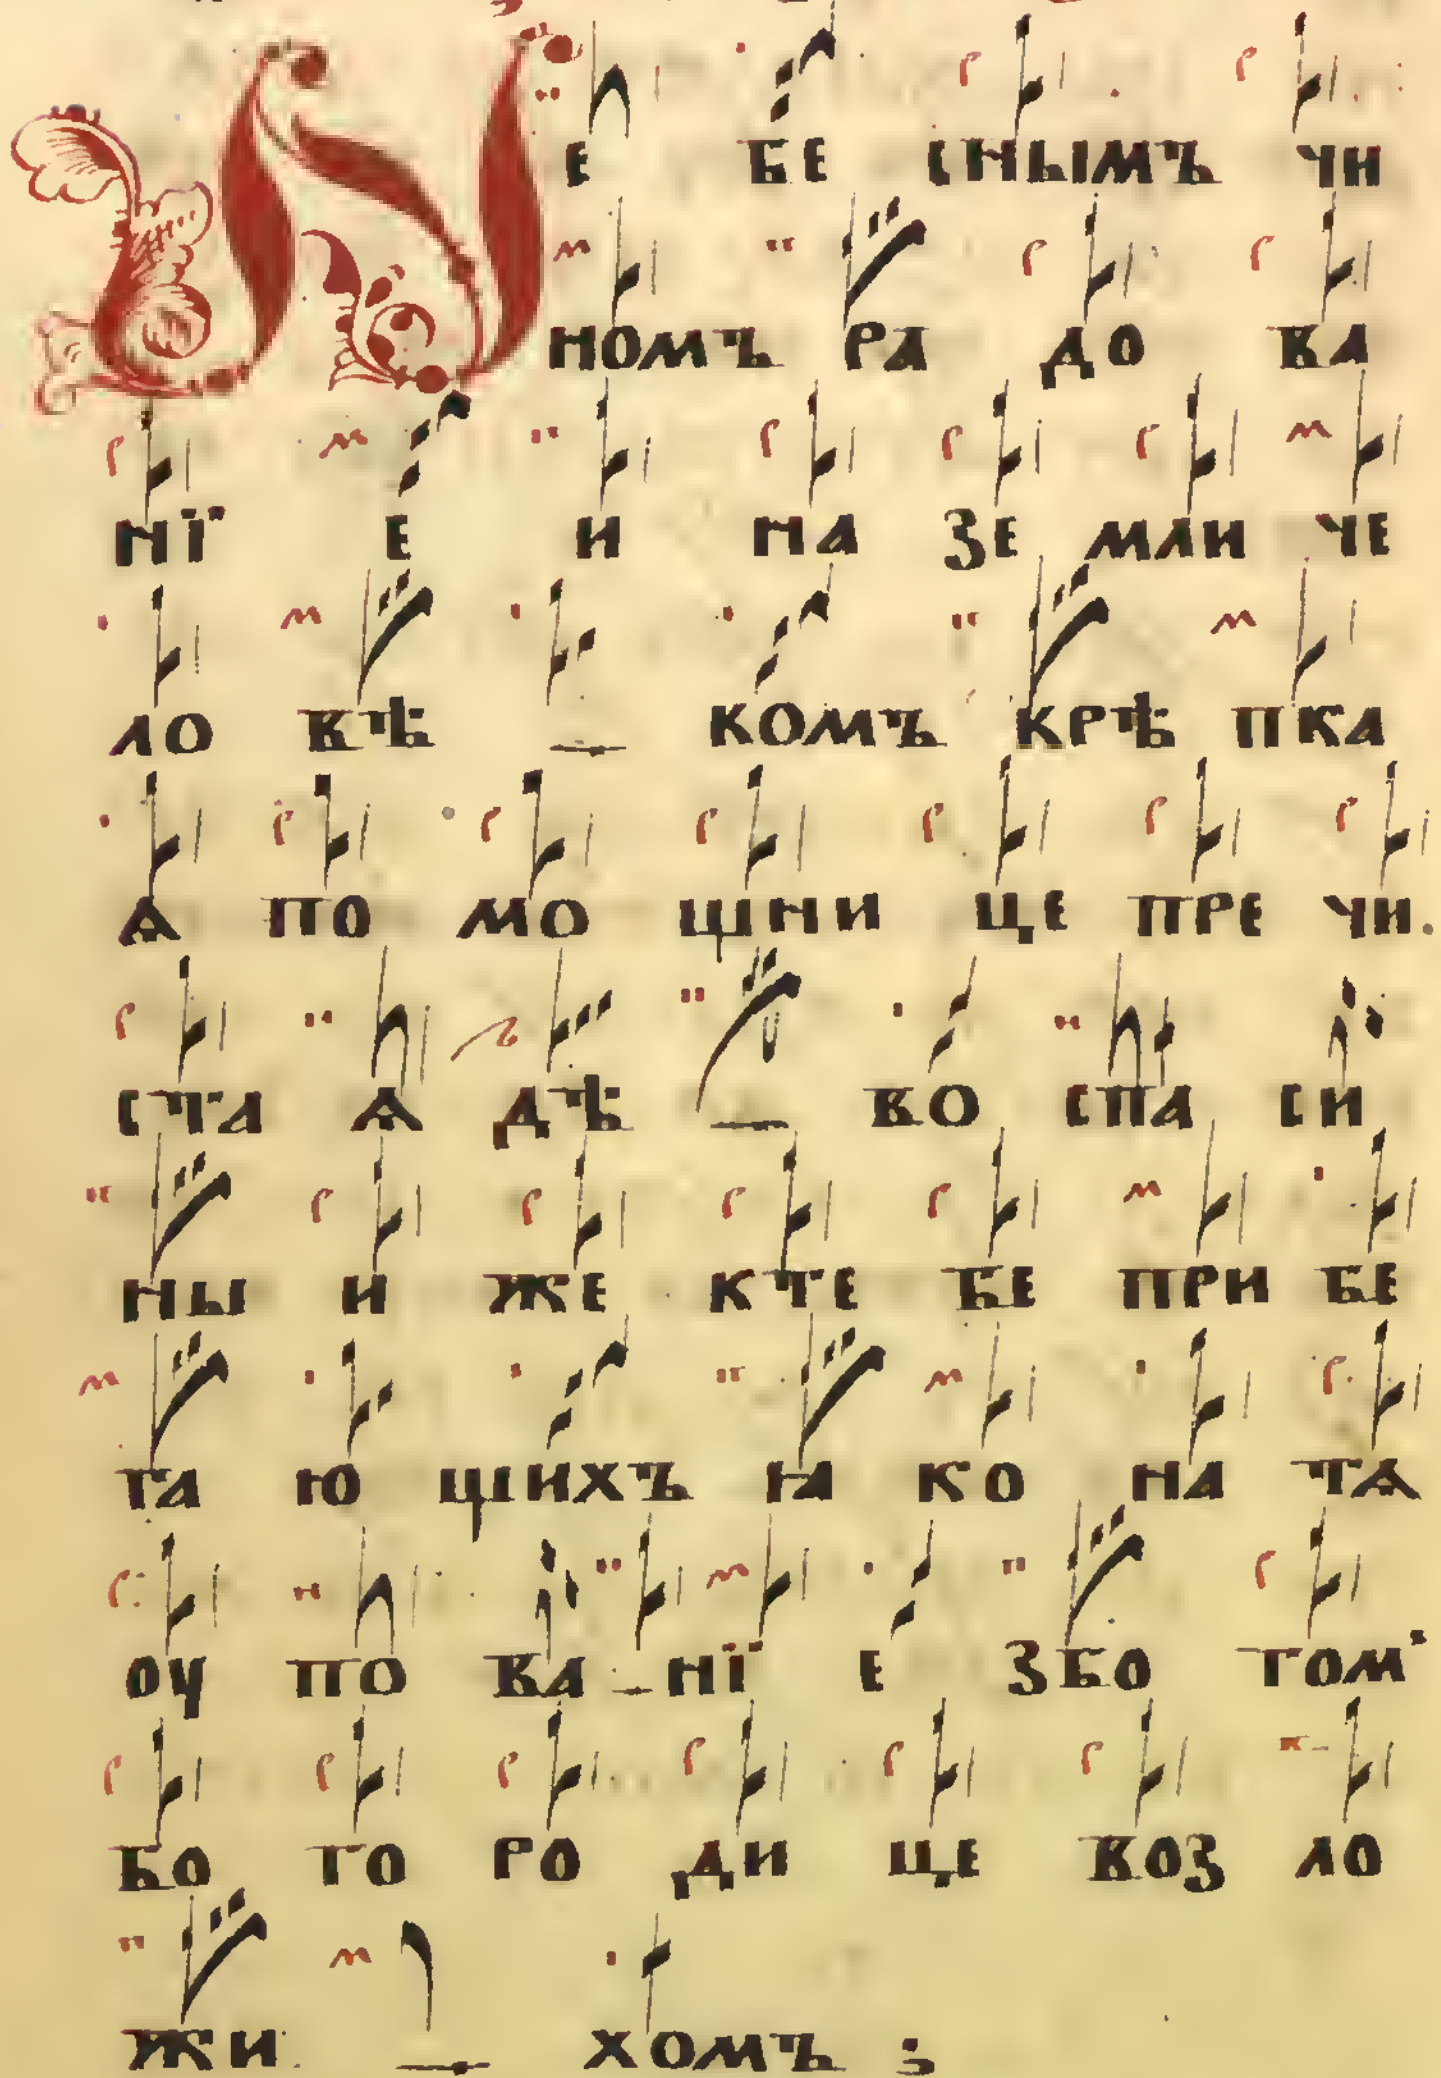 Не бе снымъ чи
номъ ра до ва
нї е и на зе мли че
ло вѣ комъ крѣ пка
ѧ по мо щни це пре чи
ста ѧ дѣ во спа си
ны и же к те бе при бе
га ю щихъ ꙗ ко на тѧ
оу по ва нї е з бо гом
бо го ро ди це воз ло
жи хомъ